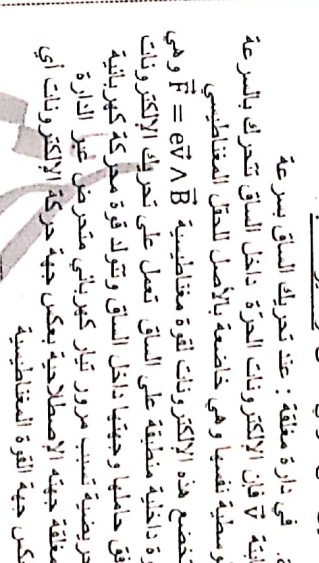 في دارة مغلقة : عند تحريك الساق بسرعة
ابتة v⃗ فإن الإلكترونات الحرّة داخل الساق تتحرك بالسرعة
وسطية نفسها وهي خاضعة بالأصل للحقل المغناطيسي
تخضع هذه الإلكترونات لقوة مغناطيسية F⃗ = ev⃗ ∧ B⃗ وهي
وة داخلية منطبقة على الساق تعمل على تحريك الإلكترونات
فق حاملها وجهتها داخل الساق وتتولد قوة محركة كهربائية
حريضية تسبب مرور تيار كهربائي متحرض عبر الدارة
مغلقة جهته الإصطلاحية بعكس جهة حركة الإلكترونات أي
عكس جهة القوة المغناطيسية